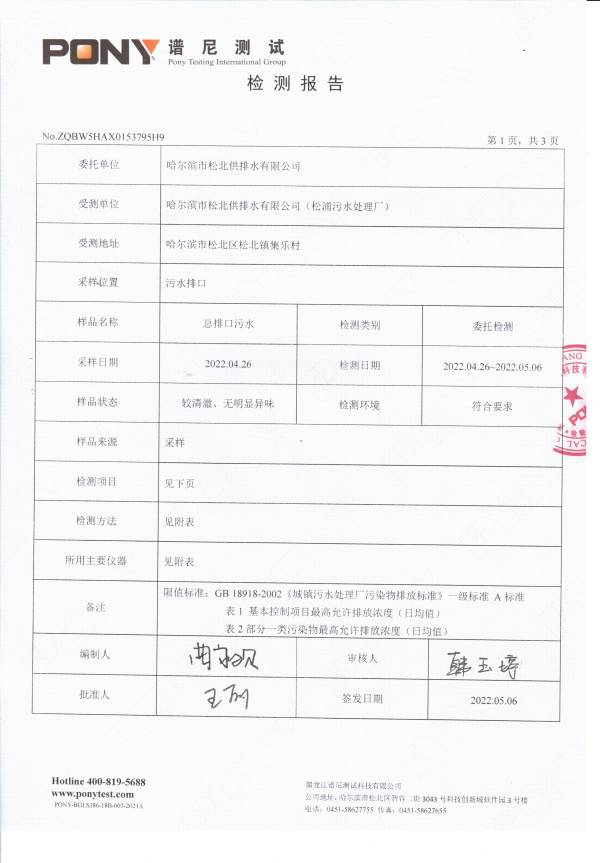 PONY 谱尼测试
Pony Testing International Group
检测报告
No.ZQBW5HAX0153795H9 第1页，共3页
委托单位 哈尔滨市松北供排水有限公司
受测单位 哈尔滨市松北供排水有限公司（松浦污水处理厂）
受测地址 哈尔滨市松北区松北镇集乐村
采样位置 污水排口
样品名称 总排口污水 检测类别 委托检测
采样日期 2022.04.26 检测日期 2022.04.26~2022.05.06
样品状态 较清澈、无明显异味 检测环境 符合要求
样品来源 采样
检测项目 见下页
检测方法 见附表
所用主要仪器 见附表
备注 限值标准：GB 18918-2002《城镇污水处理厂污染物排放标准》一级标准 A 标准
表 1 基本控制项目最高允许排放浓度（日均值）
表 2 部分一类污染物最高允许排放浓度（日均值）
编制人 审核人 韩玉婷
批准人 签发日期 2022.05.06
Hotline 400-819-5688
www.ponytest.com
PONY-BGLS186-18B-003-2021A
黑龙江谱尼测试科技有限公司
公司地址：哈尔滨市松北区智谷二街 3043 号科技创新城软件园 3 号楼
电话：0451-58627755 传真：0451-58627655